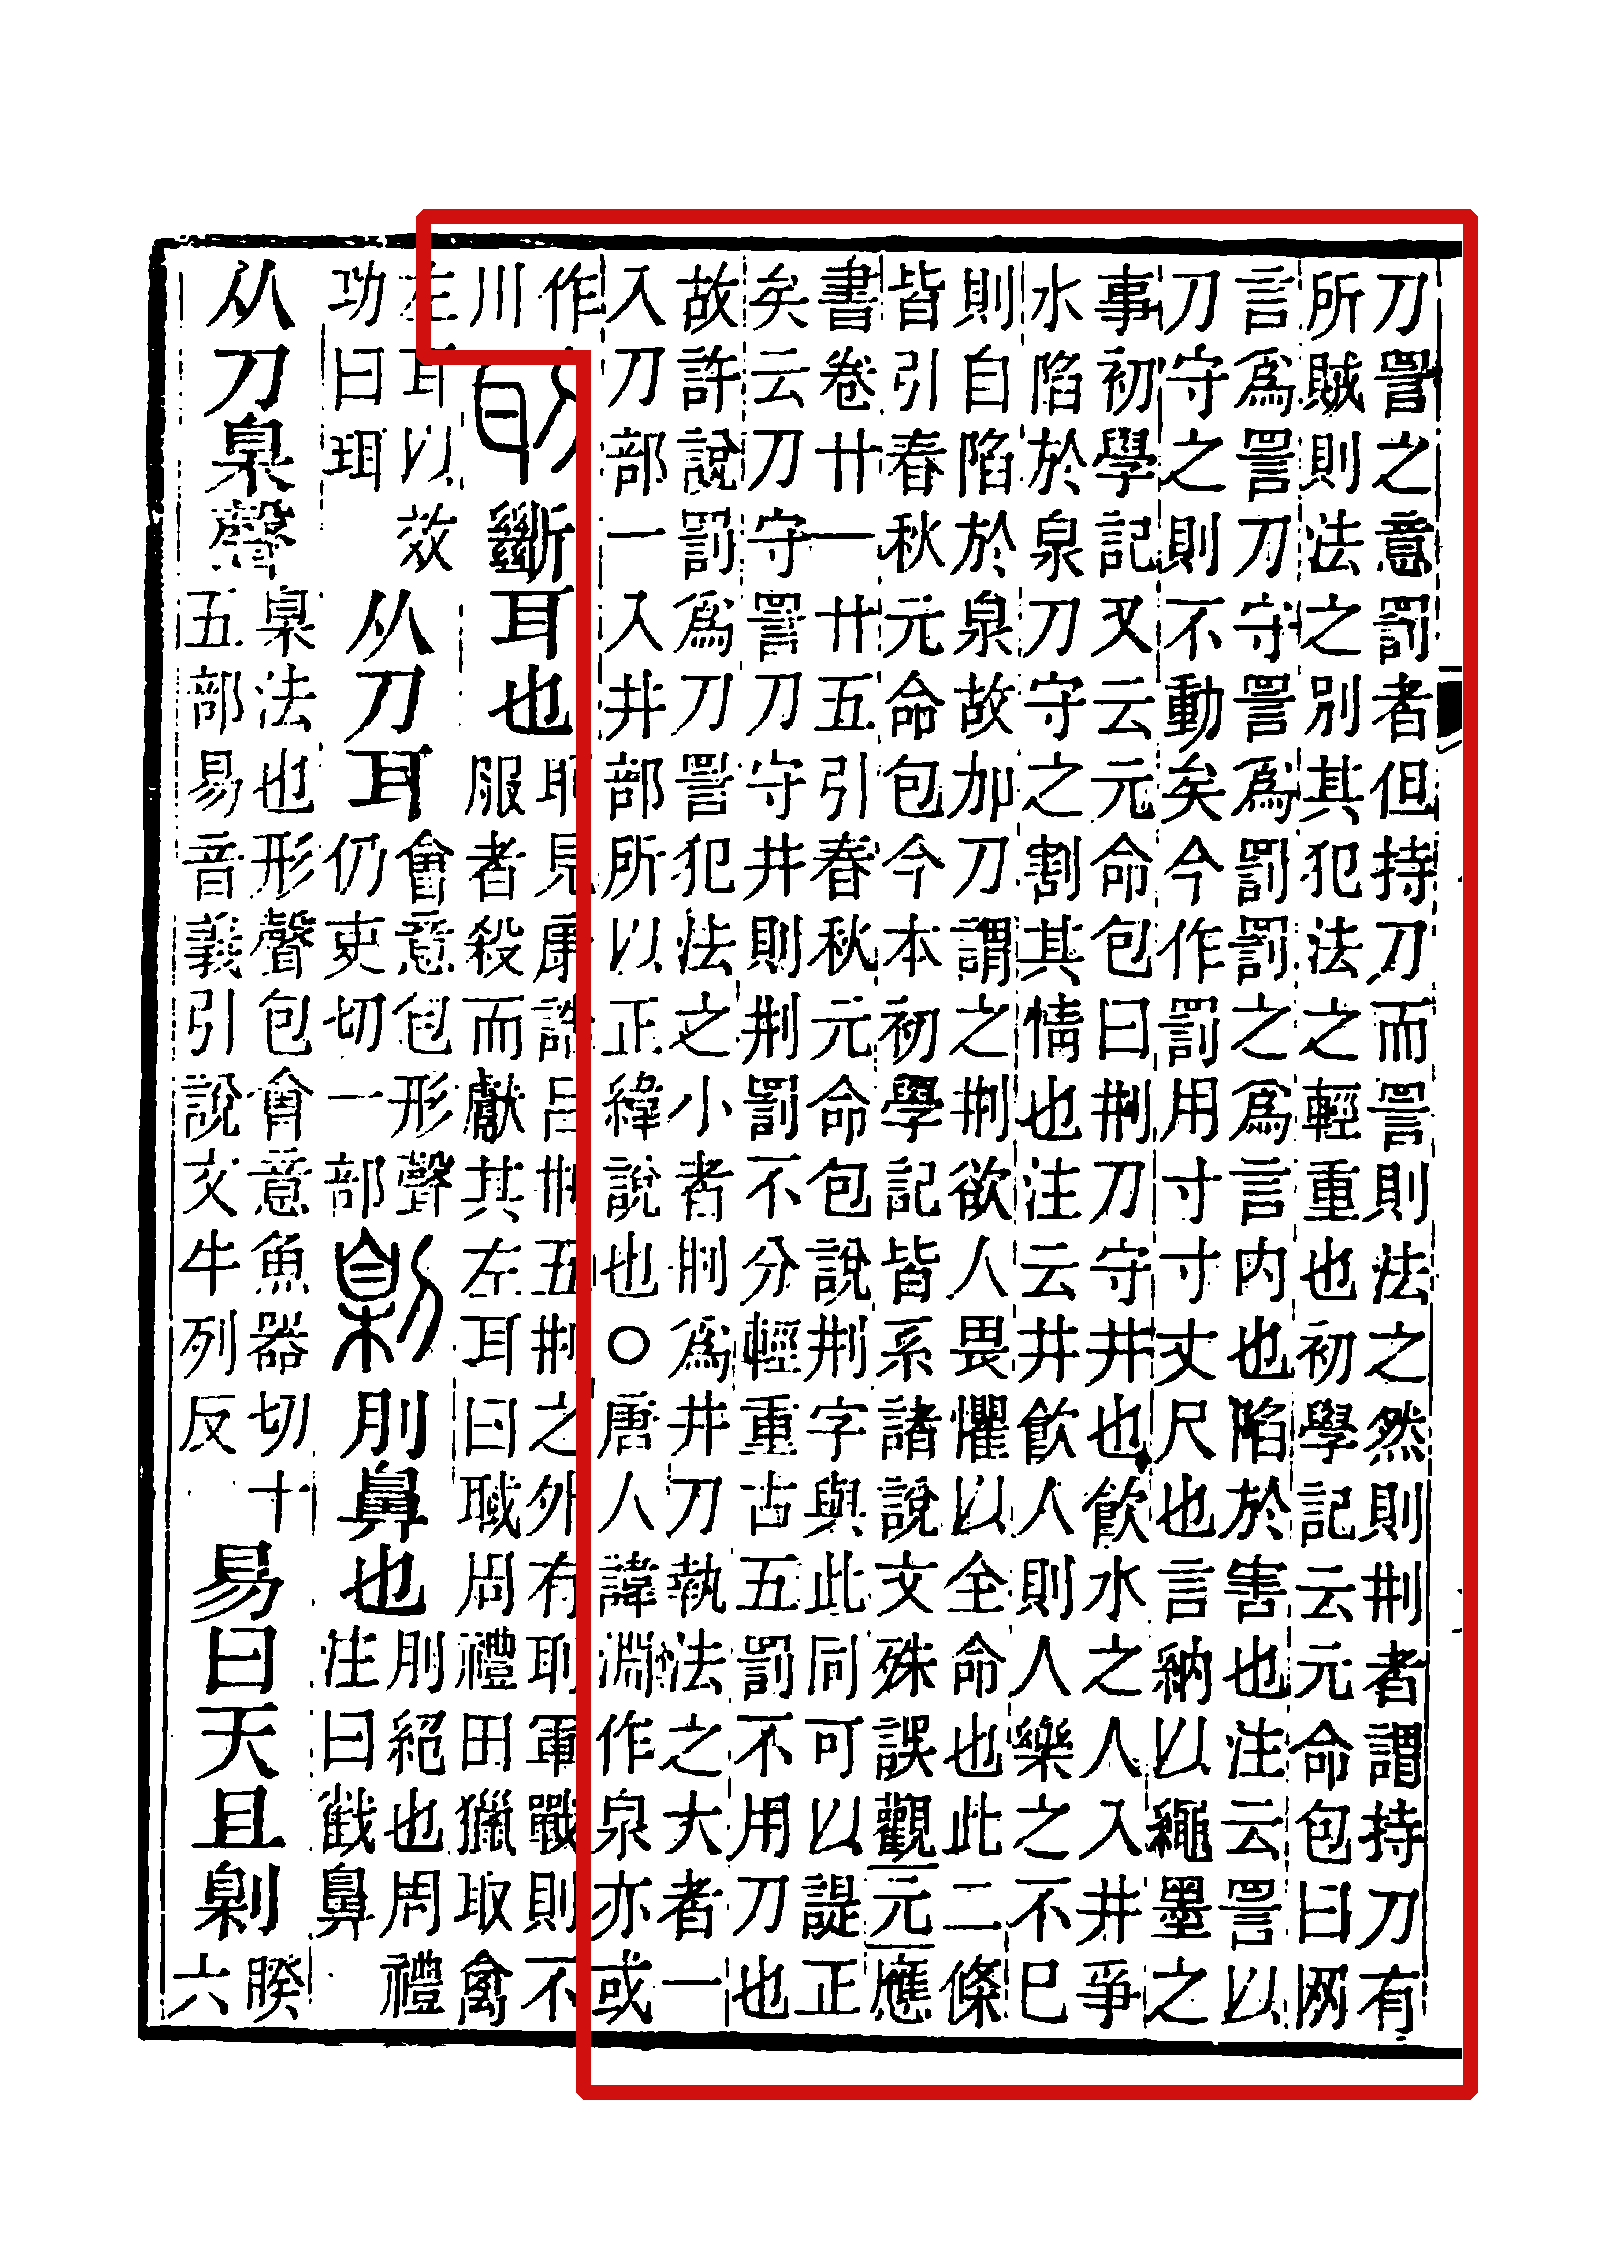 刀詈之意罰者但持刀而詈則法之然則荆者謂持刀有
所賊則法之別其犯法之輕重也初學記云元命包曰网
言爲詈刀守詈爲罰罰之爲言内也陷於害也注云詈以
刀守之則不動矣今作罰用寸寸丈尺也言納以繩墨之
事初學記又云元命包曰荆刀守井也飮水之人入井爭
水陷於泉刀守之割其情也注云井飮人則人樂之不巳
則自陷於泉故加刀謂之荆欲人畏懼以全命也此二條
皆引春秋元命包今本初學記皆系諸說文殊誤觀元應
書卷廿一廿五引春秋元命包說荆字與此同可以諟正
矣云刀守詈刀守井則荆罰不分輕重古五罰不用刀也
故許說罰爲刀詈犯法之小者刑爲井刀執法之大者一
入刀部一入井部所以正緯說也○唐人諱淵作泉亦或
作
川
刵斷耳也
刵見康誥呂荆五荆之外有刵軍戰則不
服者殺而獻其左耳曰聝周禮田獵取禽
左耳以效
功曰珥
从刀耳
會意包形聲
仍吏切一部
劓刖鼻也
刖絕也周禮
注曰截鼻
从刀臬聲
臬法也形聲包會意魚器切十
五部易音義引說文牛列反
易曰天且劓
睽
六